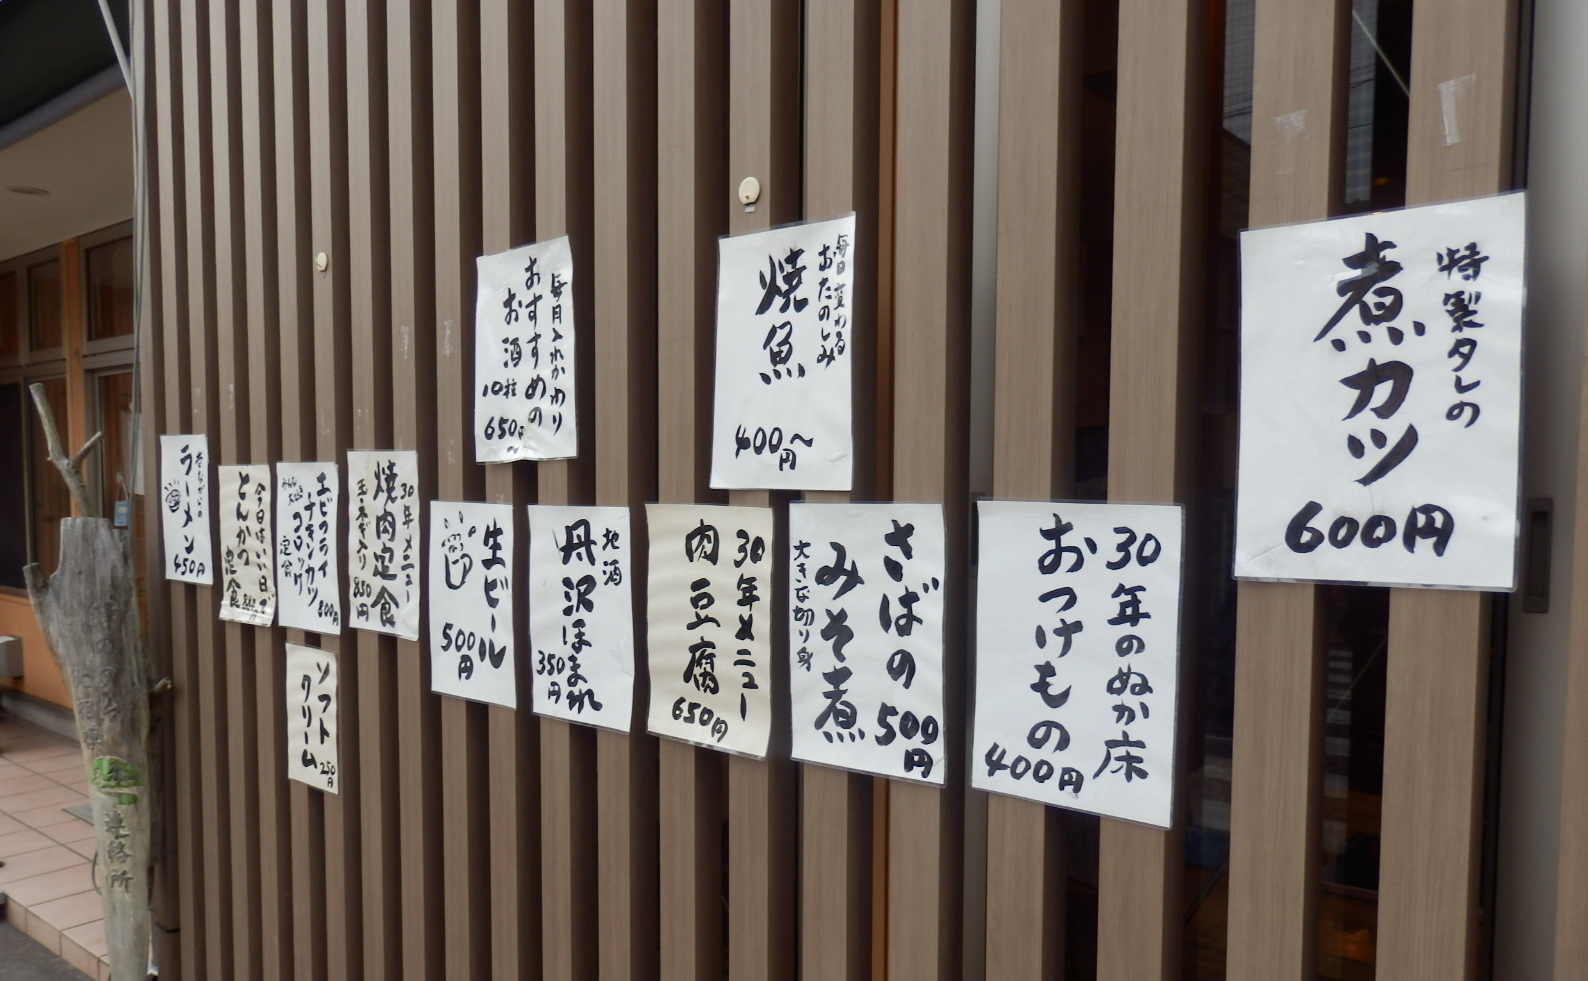 特製タレの
煮カツ
600円
30年のぬか床
おつけもの
400円
毎日変わる
おたのしみ
焼魚
400円〜
さばの
みそ煮
大きな切り身
500円
30年メニュー
肉豆腐
650円
毎月入れかわり
おすすめの
お酒
10種
650円〜
地酒
丹沢ほまれ
350円
生ビール
500円
30年メニュー
焼肉定食
玉ネギ入り
850円
エビフライ
チキンカツ
コロッケ
定食
800円
ソフト
クリーム
250円
今日はいい日だ
とんかつ
定食
ラーメン
450円
連絡所